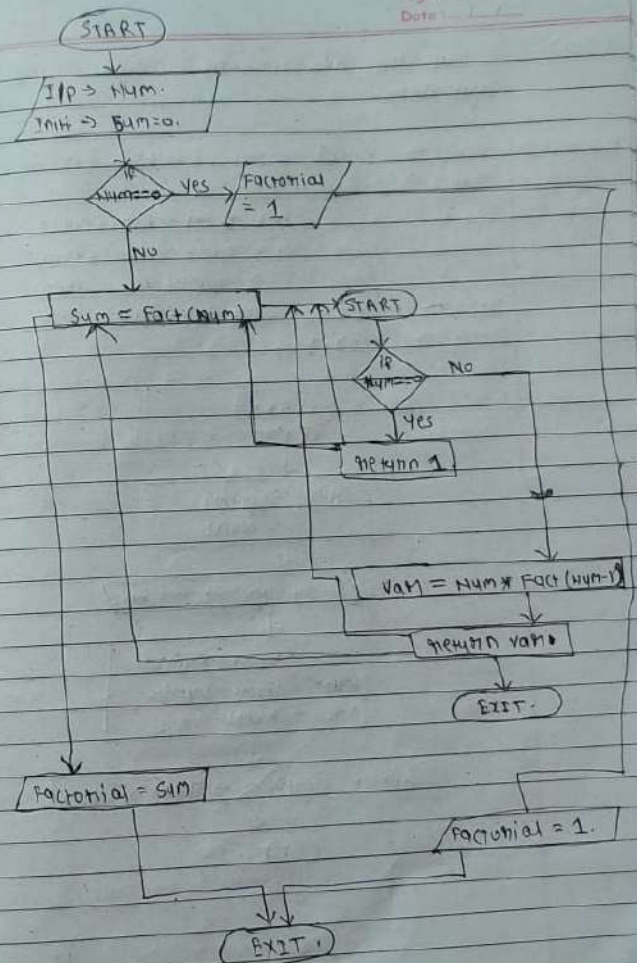 Date: / /
START
I/p => Num.
Init => Sum=0.
If
Num==0
Yes
Factorial
= 1
No
Sum = Fact(Num)
START
If
Num==0
No
Yes
return 1
Var = Num * Fact(Num-1)
return var.
EXIT.
Factorial = Sum
Factorial = 1.
EXIT.